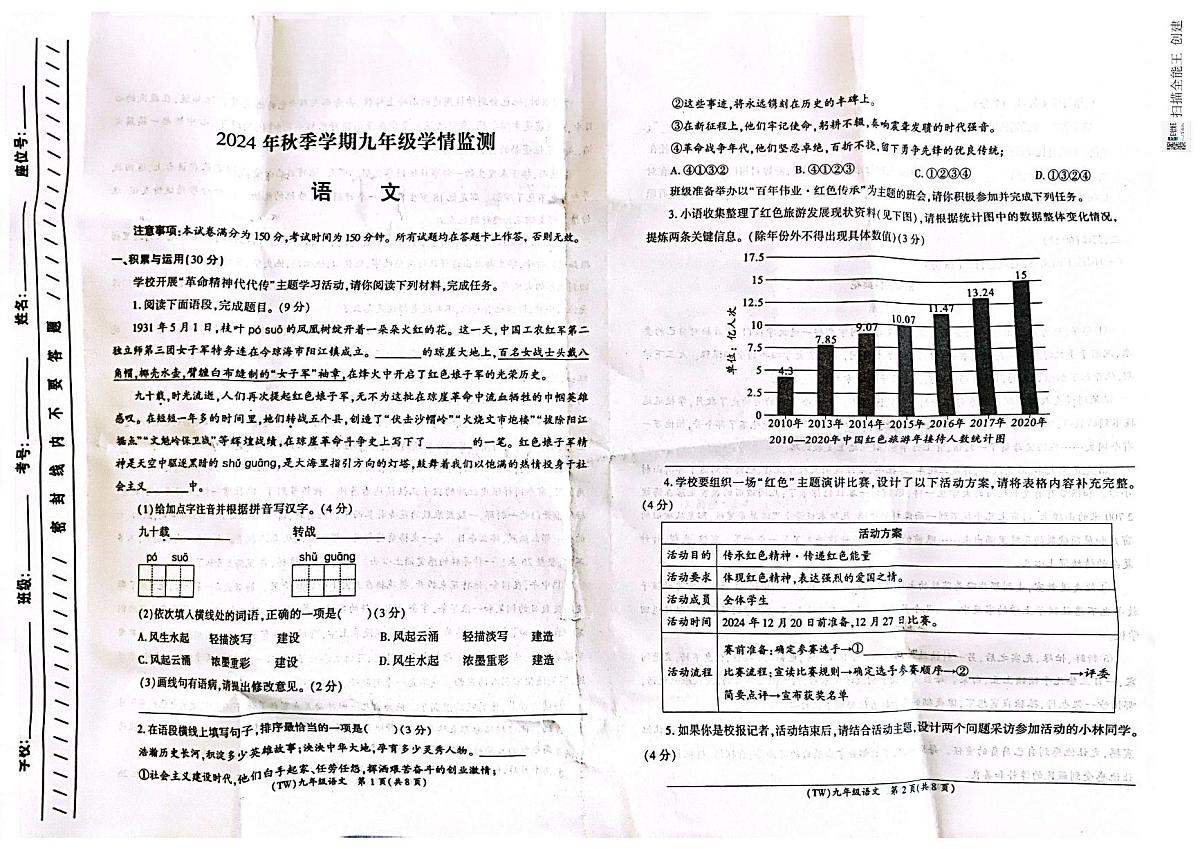 座位号:
姓名:
考号:
班级:
学校:
密 封 线 内 不 要 答 题
2024 年秋季学期九年级学情监测
语 文
注意事项:本试卷满分为 150 分,考试时间为 150 分钟。所有试题均在答题卡上作答,否则无效。
一、积累与运用(30 分)
学校开展“革命精神代代传”主题学习活动,请你阅读下列材料,完成任务。
1. 阅读下面语段,完成题目。(9 分)
1931 年 5 月 1 日,枝叶 pó suō 的凤凰树绽开着一朵朵火红的花。这一天,中国工农红军第二
独立师第三团女子军特务连在今琼海市阳江镇成立。______的琼崖大地上,百名女战士头戴八
角帽,椰壳水壶,臂缠白布缝制的“女子军”袖章,在烽火中开启了红色娘子军的光荣历史。
九十载,时光流逝,人们再次提起红色娘子军,无不为这批在琼崖革命中流血牺牲的巾帼英雄
感叹。在短短一年多的时间里,她们转战五个县,创造了“伏击沙帽岭”“火烧文市炮楼”“拔除阳江
据点”“文魁岭保卫战”等辉煌战绩,在琼崖革命斗争史上写下了______的一笔。红色娘子军精
神是天空中驱逐黑暗的 shǔ guāng,是大海里指引方向的灯塔,鼓舞着我们以饱满的热情投身于社
会主义______中。
(1)给加点字注音并根据拼音写汉字。(4 分)
九十载____________ 转战____________
pó suō shǔ guāng
(2)依次填入横线处的词语,正确的一项是( )(3 分)
A. 风生水起 轻描淡写 建设 B. 风起云涌 轻描淡写 建造
C. 风起云涌 浓墨重彩 建设 D. 风生水起 浓墨重彩 建造
(3)画线句有语病,请提出修改意见。(2 分)
2. 在语段横线上填写句子,排序最恰当的一项是( )(3 分)
浩瀚历史长河,积淀多少英雄故事;泱泱中华大地,孕育多少灵秀人物。______
①社会主义建设时代,他们白手起家、任劳任怨,挥洒艰苦奋斗的创业激情;
(TW)九年级语文 第 1 页(共 8 页)
②这些事迹,将永远镌刻在历史的丰碑上。
③在新征程上,他们牢记使命,躬耕不辍,奏响震聋发聩的时代强音。
④革命战争年代,他们坚忍卓绝,百折不挠,留下勇争先锋的优良传统;
A. ④①③② B. ④①②③ C. ①②③④ D. ①③②④
班级准备举办以“百年伟业·红色传承”为主题的班会,请你积极参加并完成下列任务。
3. 小语收集整理了红色旅游发展现状资料(见下图),请根据统计图中的数据整体变化情况,
提炼两条关键信息。(除年份外不得出现具体数值)(3 分)
单位:亿人次
17.5
15
12.5
10
7.5
5
2.5
0
4.3 7.85 9.07 10.07 11.47 13.24 15
2010年 2013年 2014年 2015年 2016年 2017年 2020年
2010—2020年中国红色旅游年接待人数统计图
4. 学校要组织一场“红色”主题演讲比赛,设计了以下活动方案,请将表格内容补充完整。
(4 分)
活动方案
活动目的 传承红色精神·传递红色能量
活动要求 体现红色精神,表达强烈的爱国之情。
活动成员 全体学生
活动时间 2024 年 12 月 20 日前准备,12 月 27 日比赛。
活动流程 赛前准备:确定参赛选手→①____________
比赛流程:宣读比赛规则→确定选手参赛顺序→②____________→评委
简要点评→宣布获奖名单
5. 如果你是校报记者,活动结束后,请结合活动主题,设计两个问题采访参加活动的小林同学。
(4 分)
(TW)九年级语文 第 2 页(共 8 页)
扫描全能王 创建